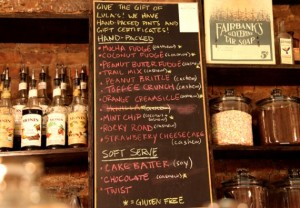 GIVE THE GIFT OF
LULA'S! WE HAVE
HAND-PACKED PINTS AND
GIFT CERTIFICATES!
HAND-PACKED
MOCHA FUDGE
COCONUT FUDGE
PEANUT BUTTER FUDGE
TRAIL MIX
PEANUT BRITTLE (cashew)
TOFFEE CRUNCH (cashew)
ORANGE CREAMSICLE
MINT CHIP
ROCKY ROAD (cashew)
STRAWBERRY CHEESECAKE
(cashew)
SOFT SERVE
CAKE BATTER (soy)
CHOCOLATE
TWIST
* = GLUTEN FREE
FAIRBANK'S
TAR SOAP